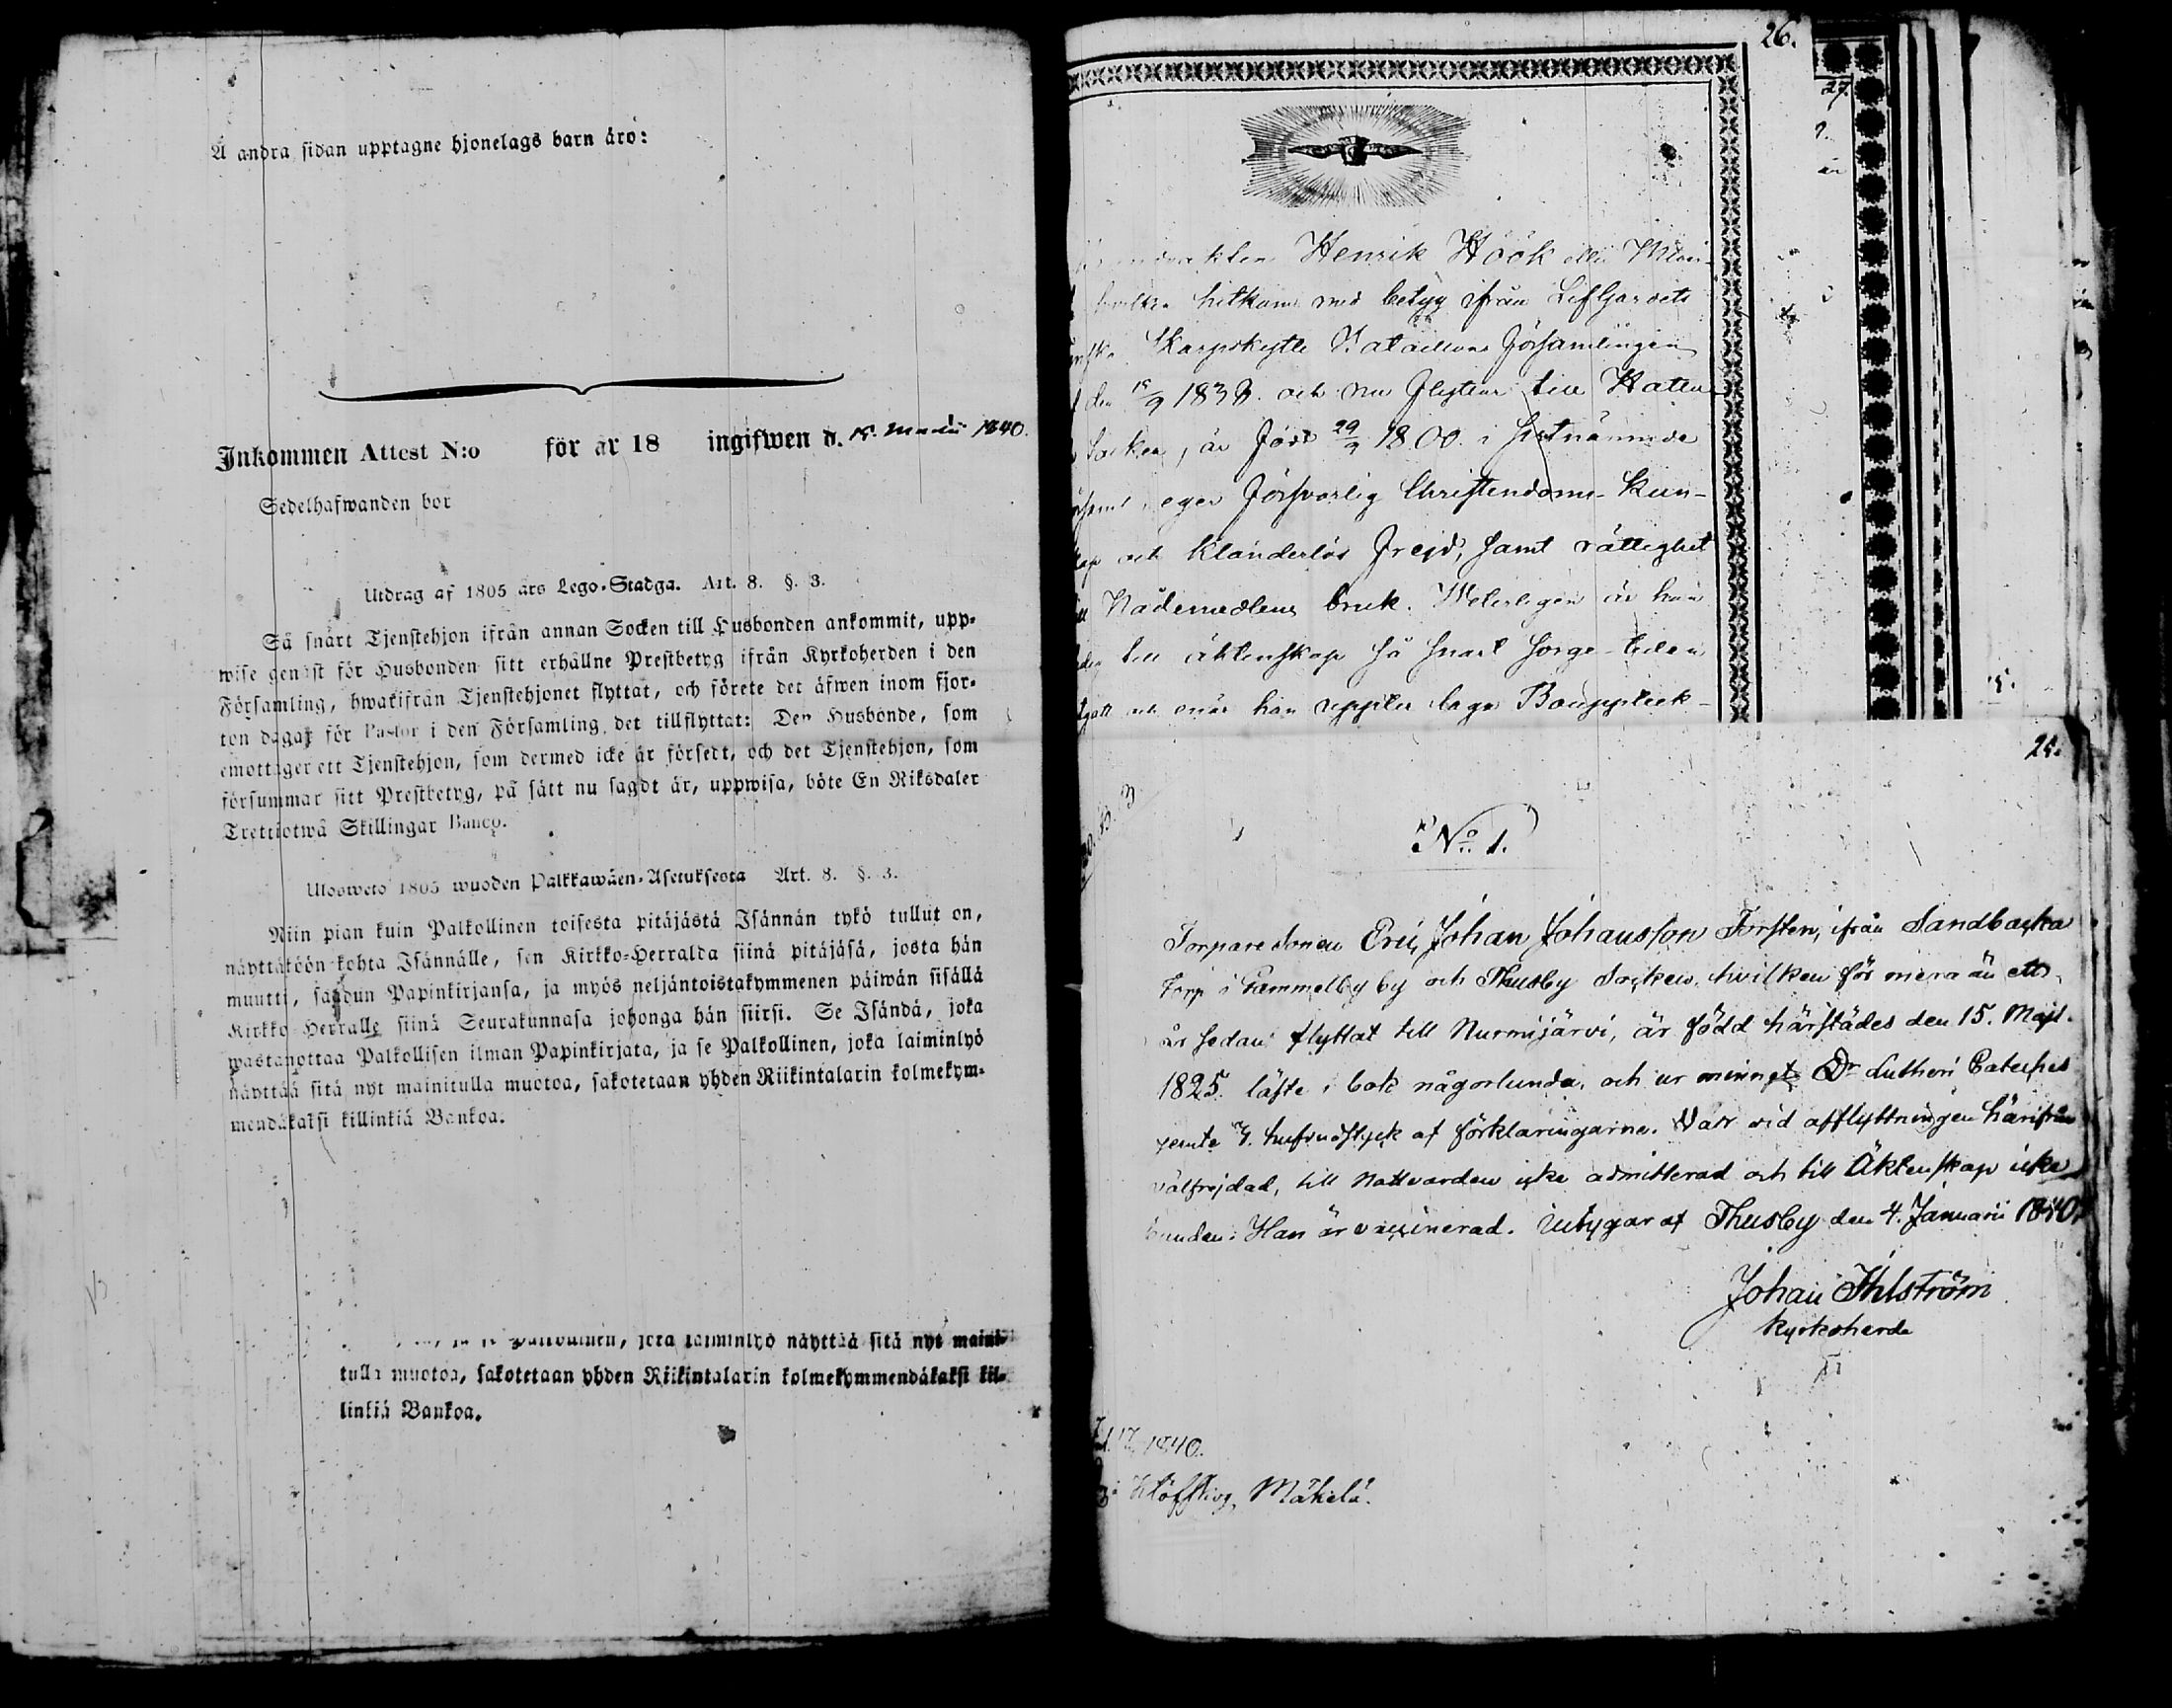 Å andra sidan upptagne hjonelags barn äro:
Inkommen Attest N:o för år 18 ingifwen d. 15. Martii 1840.
Sedelhafwanden bor
Utdrag af 1805 års Lego-Stadga. Art. 8. §. 3.
Så snart Tjenstehjon ifrån annan Socken till Husbonden ankommit, upp-
wise genast för Husbonden sitt erhållne Prestbetyg ifrån Kyrkoherden i den
Församling, hwarifrån Tjenstehjonet flyttat, och förete det äfwen inom fjor-
ton dagar för Pastor i den Församling det tillflyttat: Den Husbonde, som
emottager ett Tjenstehjon, som dermed icke är försedt, och det Tjenstehjon, som
försummar sitt Prestbetyg, på sätt nu sagdt är, uppwisa, böte En Riksdaler
Trettiotwå Skillingar Banco.
Ulosweto 1805 wuoden Palkkawäen-Asetuksesta Art. 8. §. 3.
Niin pian kuin Palkollinen toisesta pitäjästä Isännän tykö tullut on,
näyttäköön kohta Isännälle, sen Kirkko-Herralda siinä pitäjäsä, josta hän
muutti, saadun Papinkirjansa, ja myös neljäntoistakymmenen päiwän sisällä
Kirkko Herralle siinä Seurakunnasa johonga hän siirsi. Se Isändä, joka
wastanottaa Palkollisen ilman Papinkirjata, ja se Palkollinen, joka laiminlyö
näyttää sitä nyt mainitulla muotoa, sakotetaan yhden Riikintalarin kolmekym-
mendäkaksi killinkiä Bankoa.
joka laiminlyö näyttää sitä nyt maini-
tulla muotoa, sakotetaan yhden Riikintalarin kolmekymmendäkaksi kil-
linkiä Bankoa.
26.
27.
Henrik Höök eller
hvilken hitkom med betyg ifrån LifGardets
Skarpskytte Bataillons Församlingen
den 15/9 1838. och nu flyttar till Hattu
Socken, är född 29/9 1800. i sistnämnde
eger försvarlig Christendoms-Kun-
skap och klanderlös frejd, samt rättighet
till Nådemedlens bruk. Veterligen är han
ledig till äktenskap så snart sorge-tiden
utgått och när han uppter laga Bouppteck-
25.
No 1.
Torpare Sonen Eric Johan Johansson Forsten, ifrån Sandbacka
torp i Gammelby by och Thusby Socken, hvilken för mera än ett
år sedan flyttat till Nurmijärvi, är född härstädes den 15. Maji
1825. läste i bok någorlunda, och ur minnet Dr Lutheri Cateches
jemte 4. hufvudstyck af förklaringarne. Var vid afflyttningen härifrån
välfrejdad, till Nattvarden icke admitterad och till Äktenskap icke
bunden. Han är vaccinerad. Intygar af Thusby den 4. Januarii 1840.
Johan Ihlström
Kyrkoherde
1840.
Klöfskog, Mäkelä.